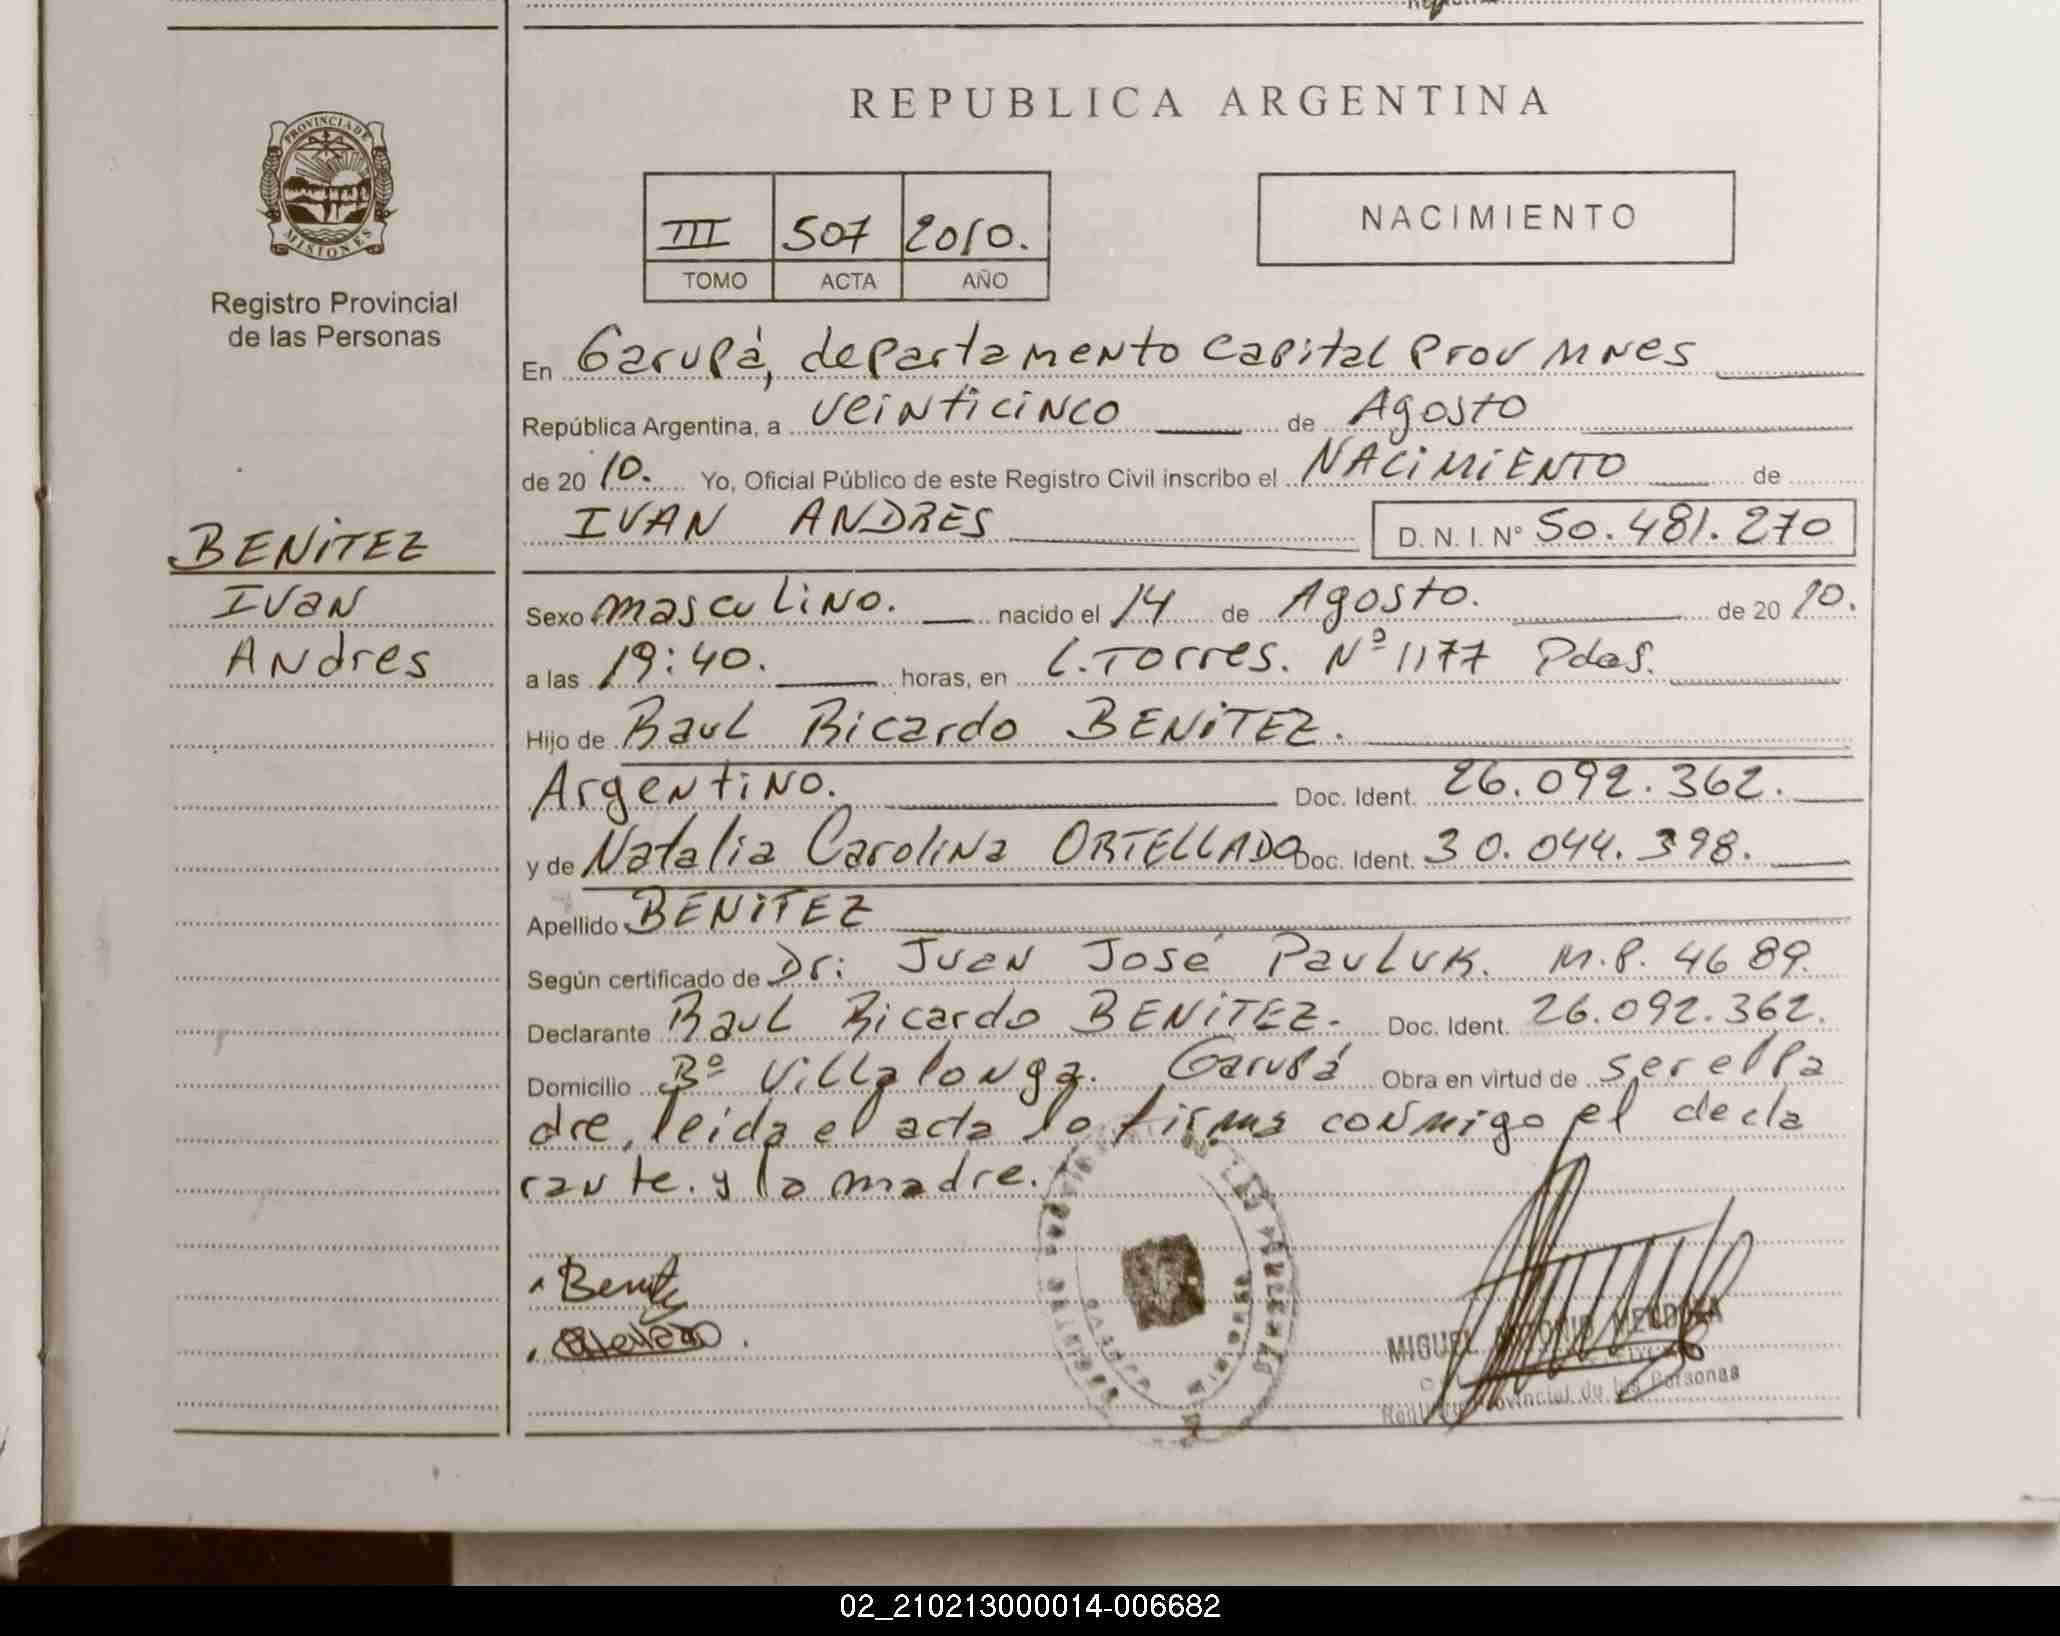 REPUBLICA ARGENTINA
PROVINCIA DE
MISIONES
Registro Provincial
de las Personas
III 507 2010.
TOMO ACTA AÑO
NACIMIENTO
En Garupá, departamento Capital Prov Mnes
República Argentina, a veinticinco de Agosto
de 2010. Yo, Oficial Público de este Registro Civil inscribo el NACIMIENTO de
IVAN ANDRES D. N. I. Nº 50.481.270
BENITEZ
Ivan
Andres
Sexo masculino. nacido el 14 de Agosto. de 2010.
a las 19:40. horas, en L. Torres. Nº 1177 Pdas.
Hijo de Raul Ricardo BENITEZ.
Argentino. Doc. Ident. 26.092.362.
y de Natalia Carolina ORTELLADO Doc. Ident. 30.044.398.
Apellido BENITEZ
Según certificado de Dr: Juan José Pauluk. M.P. 4689.
Declarante Raul Ricardo BENITEZ. Doc. Ident. 26.092.362.
Domicilio Bº Villalonga. Garupá Obra en virtud de ser el pa
dre, leida el acta lo firma conmigo el decla
rante. y la madre.
Benitez
MIGUEL ANTONIO MENDOZA
Provincial de las Personas
02_210213000014-006682